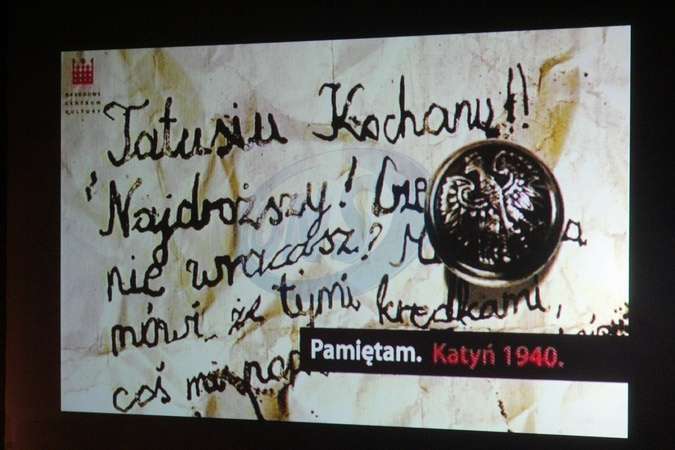 NARODOWE
CENTRUM
KULTURY
Tatusiu Kochany!!
Najdroższy!
nie wracasz?
mówi że tymi kredkami,
coś
Pamiętam. Katyń 1940.